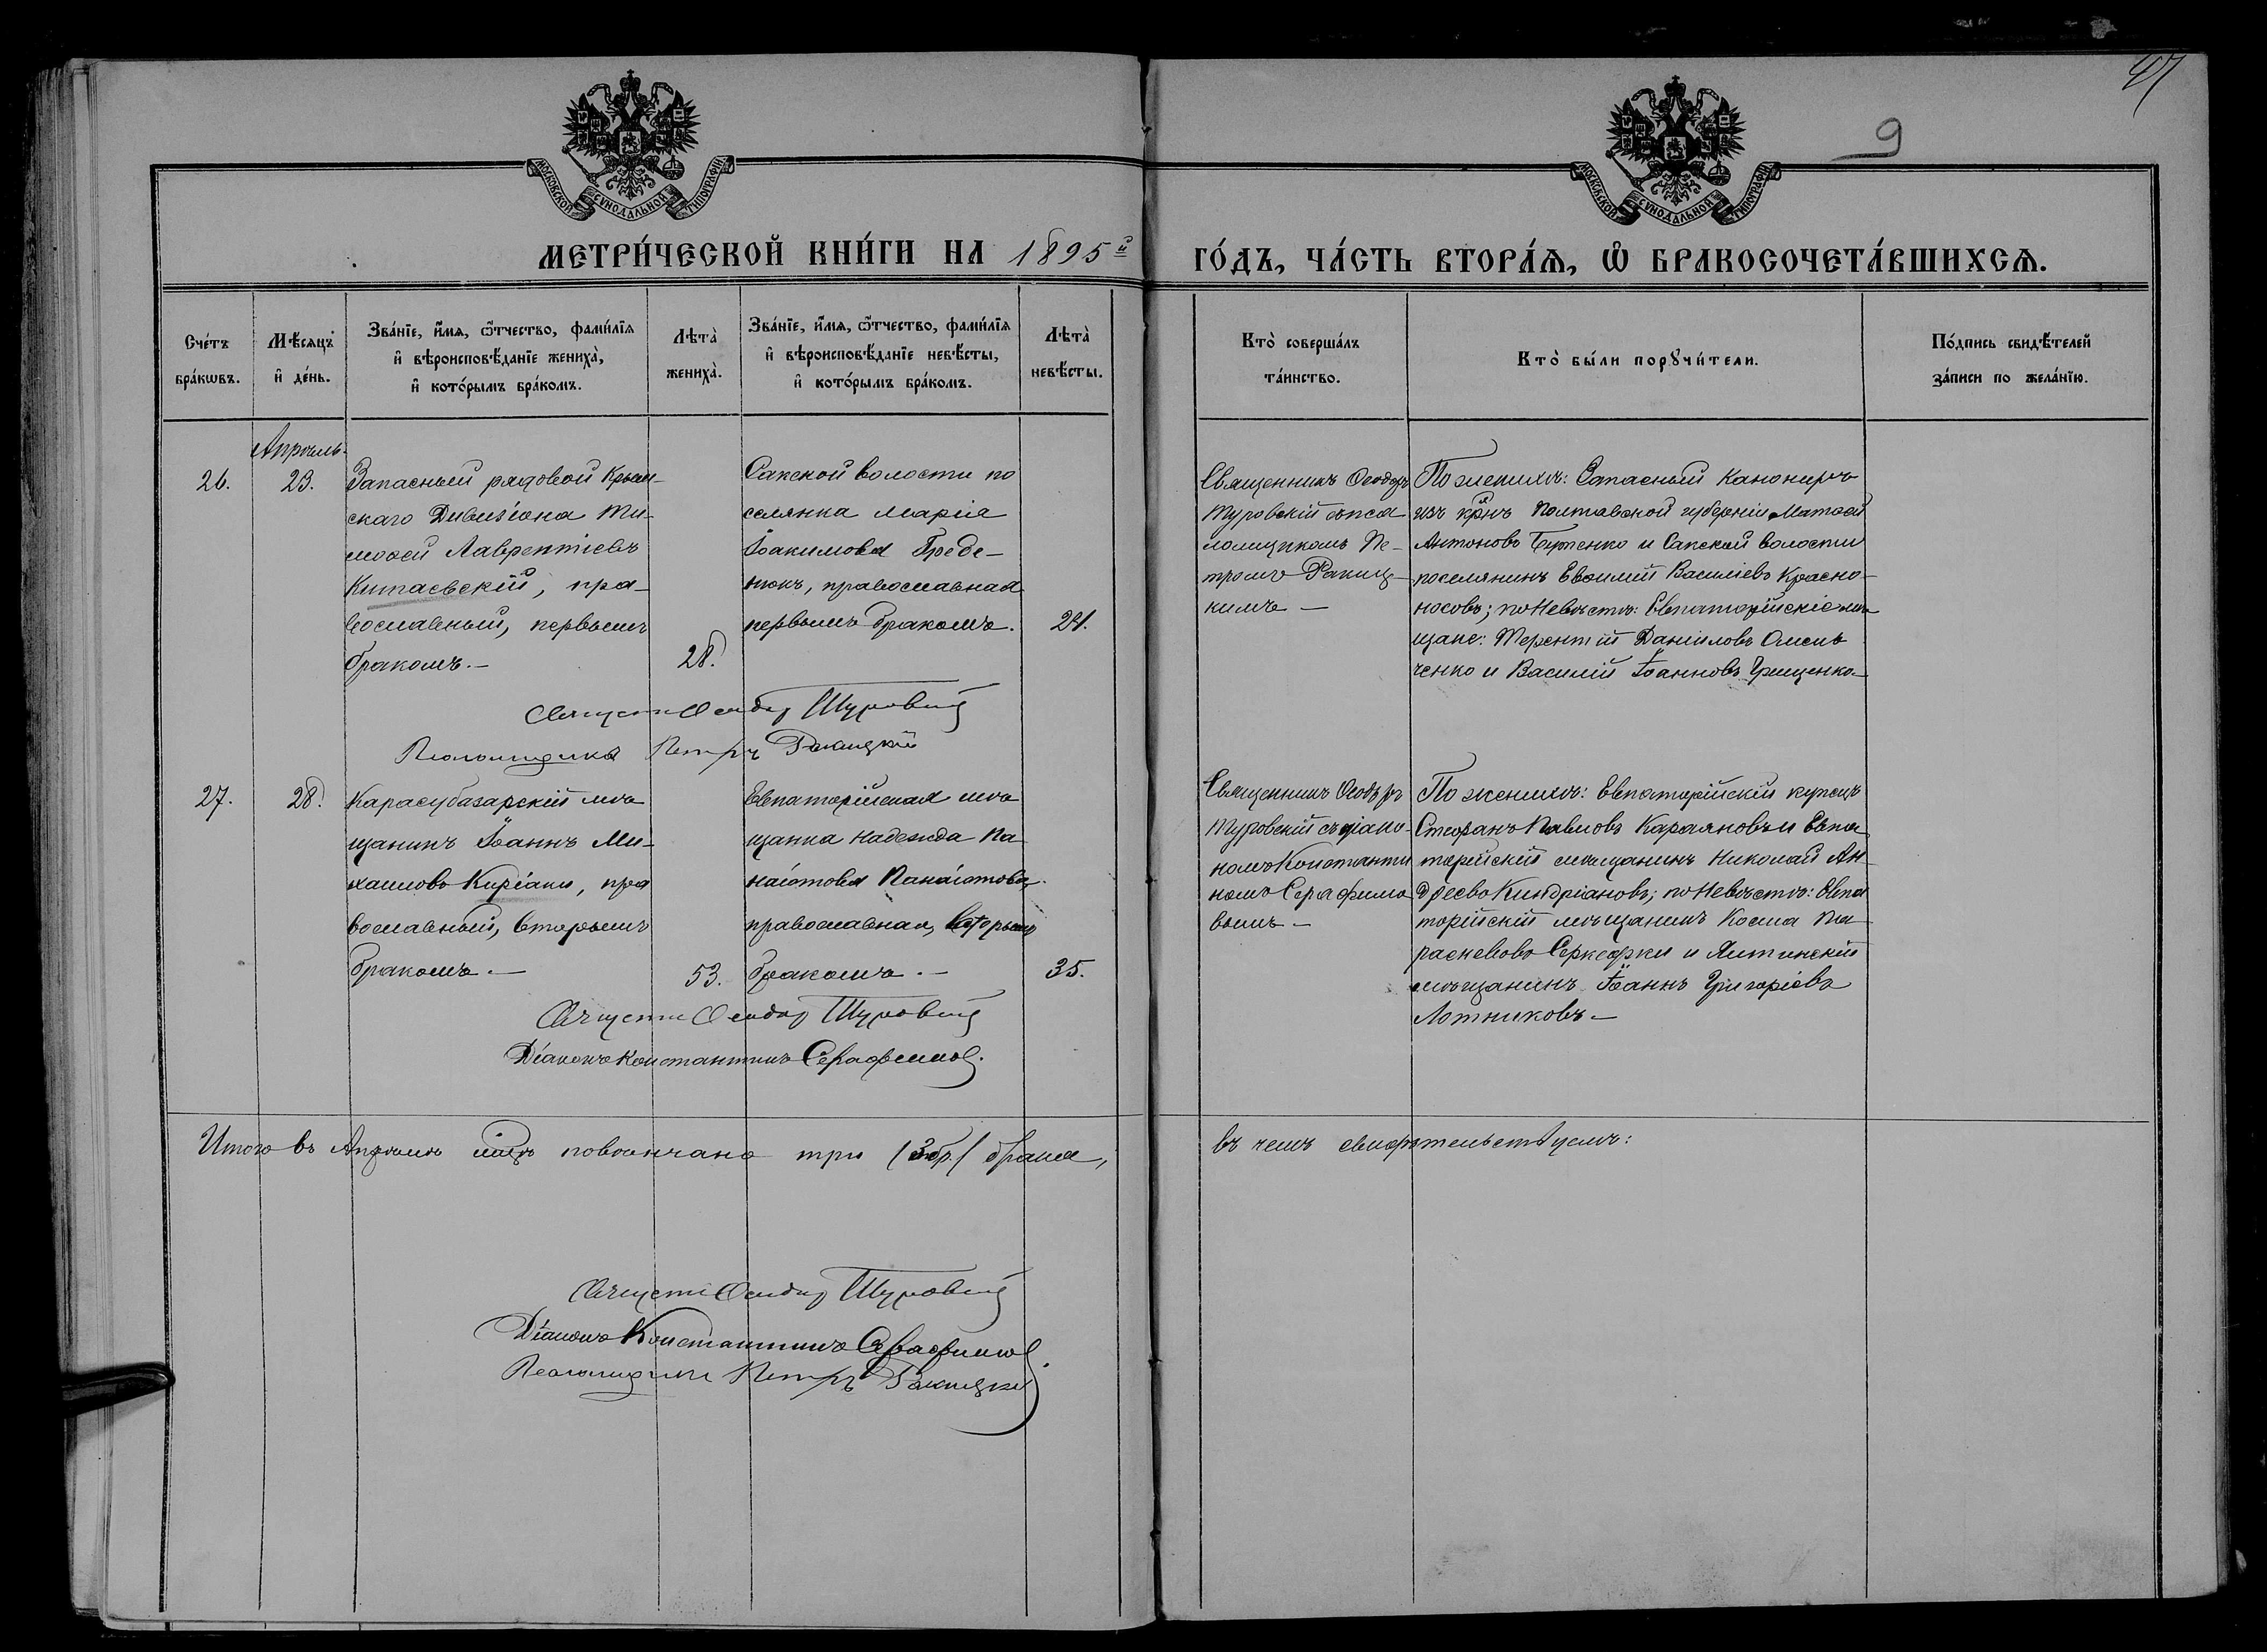 47
9
МОСКОВСКОЙ СУНОДАЛЬНОЙ ТИПОГРАФІИ
МОСКОВСКОЙ СУНОДАЛЬНОЙ ТИПОГРАФІИ
МЕТРИ́ЧЕСКОЙ КНИ́ГИ НА 1895й ГО́ДЪ, ЧА́СТЬ ВТОРА́Ѧ, Ѡ БРАКОСОЧЕТА́ВШИХСѦ.
Сче́тъ
бра́кѡвъ.
Мѣ́сяцъ
и де́нь.
Зва́нїе, и́мѧ, ѻ҆́тчество, фами́лїѧ
и вѣроисповѣ́данїе жениха̀,
и кото́рымъ бра́комъ.
Лѣта̀
жениха̀.
Зва́нїе, и́мѧ, ѻ҆́тчество, фами́лїѧ
и вѣроисповѣ́данїе невѣ́сты,
и кото́рымъ бра́комъ.
Лѣта̀
невѣ́сты.
Кто̀ соверша́лъ
та́инство.
Кто̀ бы́ли порꙋчи́тели.
По́дпись свидѣ́телей
за́писи по жела́нїю.
26.
Апрѣль.
23.
Запасный рядовой Крым-
скаго Дивизіона Ти-
моѳей Лаврентіевъ
Китаевскій, пра-
вославный, первымъ
бракомъ.—
28.
Сакской волости по
селянка Марія
Іоакимова Греде-
нюкъ, православная
первымъ бракомъ.
21.
Священникъ Ѳеодоръ
Туровскій съ пса
ломщикомъ Пе-
тромъ Ракиц-
кимъ —
По женихѣ: Запасный Канониръ
изъ крнъ Полтавской губерніи Матѳей
Антоновъ Бутенко и Сакской волости
поселянинъ Евѳимій Василіевъ Красно-
носовъ; по Невѣстѣ: Евпаторійскіе мѣ-
щане: Терентій Даніиловъ Омель
ченко и Василій Іоанновъ Грищенко—
Священн Ѳеодор Туровскій
Псаломщикъ Петръ Ракицкій
27.
28.
Карасубазарскій мѣ
щанинъ Іоаннъ Ми-
хаиловъ Киріаки, пра
вославный, вторымъ
бракомъ.—
53.
Евпаторійская мѣ
щанка Надежда Па
наіотова Панаіотова
православная, вторымъ
бракомъ.—
35.
Священникъ Ѳеодоръ
Туровскій съ діако-
номъ Константи
номъ Серафимо
вымъ —
По женихѣ: Евпаторійскій купецъ
Стефанъ Павловъ Караяновъ и Евпа
торійскій мѣщанинъ Николай Ан-
дреевъ Киндріановъ; по Невѣстѣ: Евпа
торійскій мѣщанинъ Косма Па
раскевовъ Серкефжи и Ялтинскій
мѣщанинъ Іоаннъ Григоріевъ
Лотниковъ—
Священн Ѳеодор Туровскій
Діаконъ Константинъ Серафимов.
Итого въ Апрѣлѣ мѣцѣ повѣнчано три (3 бр.) брака, въ чемъ свидѣтельствуемъ:
Священн Ѳеодор Туровскій
Діаконъ Константинъ Серафимов.
Псаломщикъ Петръ Ракицкій